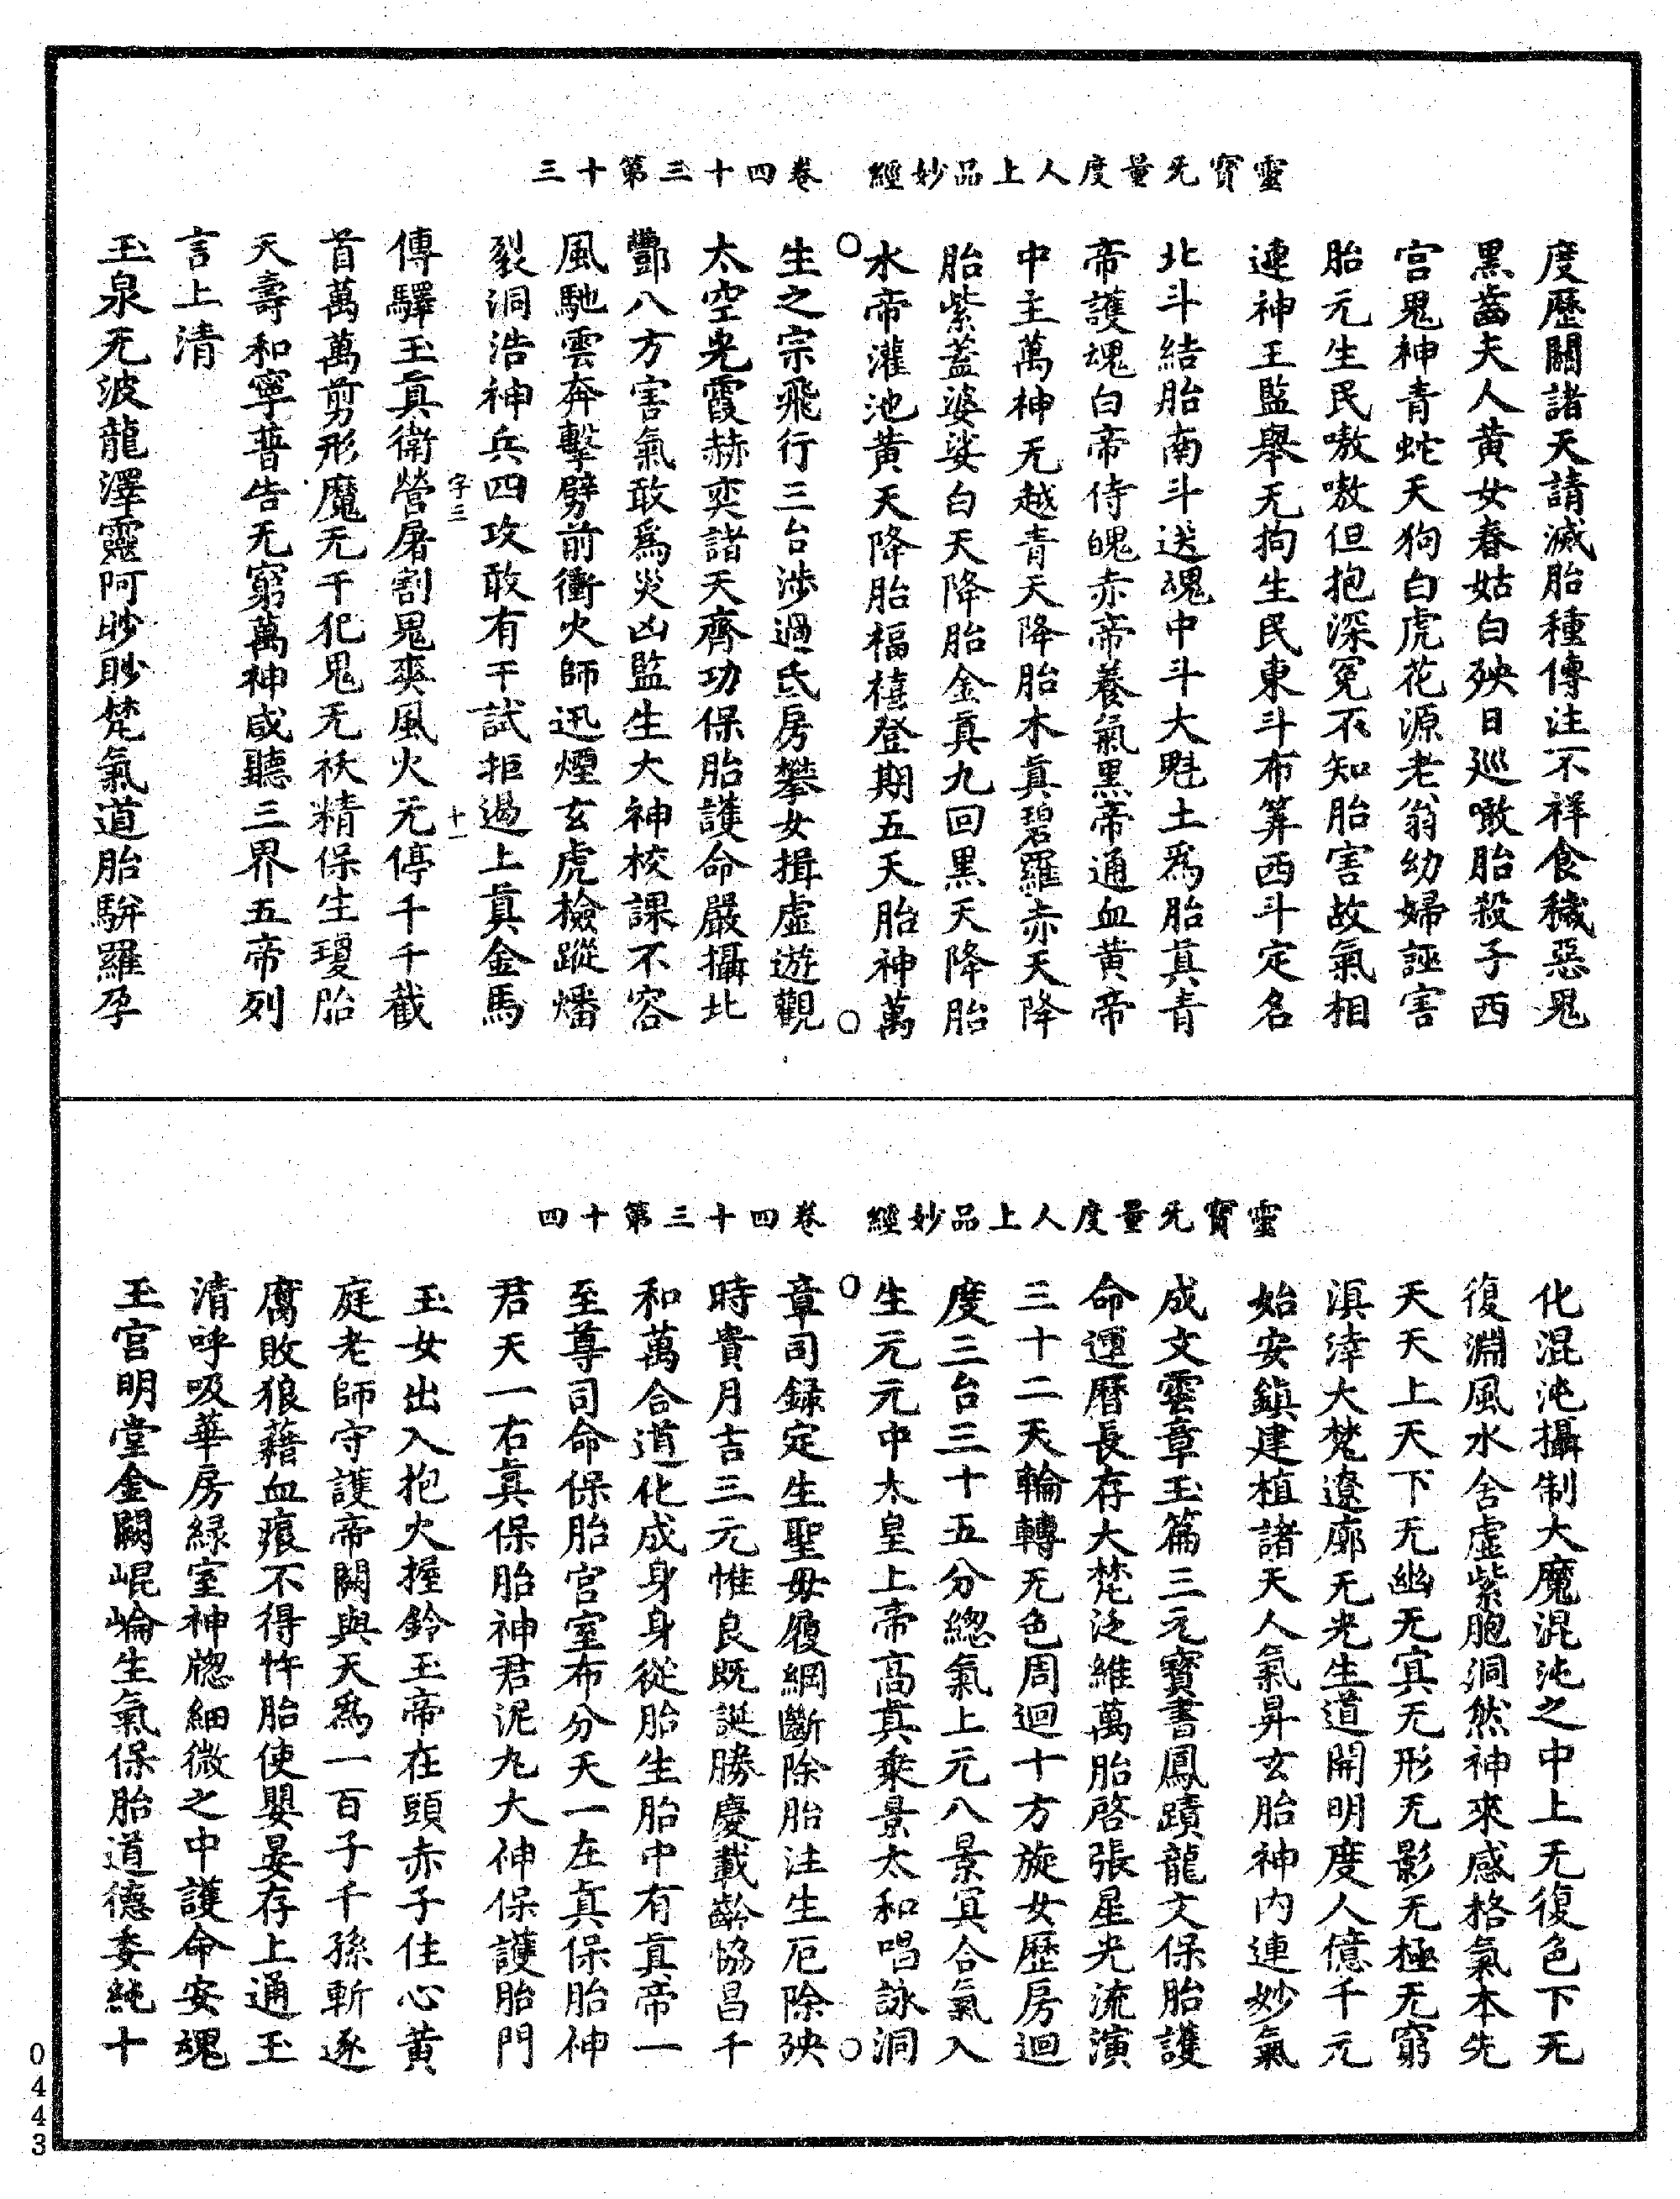 靈寶无量度人上品妙經　卷四十三第十三
度歷關諸天請滅胎種傳注不祥食穢惡鬼
黑齒夫人黃女春姑白殃日巡噉胎殺子西
宮鬼神青蛇天狗白虎花源老翁幼婦誣害
胎元生民嗷嗷但抱深冤不知胎害故氣相
連神王監舉无拘生民東斗布筭西斗定名
北斗結胎南斗送魂中斗大魁土為胎真青
帝護魂白帝侍魄赤帝養氣黑帝通血黃帝
中主萬神无越青天降胎木真碧羅赤天降
胎紫蓋婆娑白天降胎金真九回黑天降胎
水帝灌池黃天降胎福禧登期五天胎神萬
生之宗飛行三台涉過氐房攀女揖虛遊觀
太空光霞赫奕諸天齊功保胎護命嚴攝北
酆八方害氣敢為災凶監生大神校課不容
風馳雲奔擊劈前衝火師迅煙玄虎撿蹤燔
裂洞浩神兵四攻敢有干試拒遏上真金馬
字三　十一
傳驛玉真衛營屠割鬼爽風火无停千千截
首萬萬剪形魔无干犯鬼无祅精保生瓊胎
天壽和寧普告无窮萬神咸聽三界五帝列
言上清
玉泉无波龍澤靈阿眇眇梵氣道胎駢羅孕
靈寶无量度人上品妙經　卷四十三第十四
化混沌攝制大魔混沌之中上无復色下无
復淵風水舍虛紫胞洞然神來感格氣本先
天天上天下无幽无冥无形无影无極无窮
溟涬大梵遼廓无光生道開明度人億千元
始安鎮建植諸天人氣昇玄胎神內連妙氣
成文雲章玉篇三元寶書鳳蹟龍文保胎護
命運曆長存大梵泛維萬胎啓張星光流演
三十二天輪轉无色周迴十方旋女歷房迴
度三台三十五分緫氣上元八景冥合氣入
生元元中太皇上帝高真乘景太和唱詠洞
章司録定生聖毋履綱斷除胎注生厄除殃
時貴月吉三元惟良既誕勝慶載齡恊昌千
和萬合道化成身身從胎生胎中有真帝一
至尊司命保胎宮室布分天一在真保胎神
君天一右真保胎神君泥丸大神保護胎門
玉女出入抱火握鈴玉帝在頭赤子住心黃
庭老師守護帝關與天為一百子千孫斬逐
腐敗狼藉血痕不得忤胎使嬰晏存上通玉
清呼吸華房緑室神牎細微之中護命安魂
玉宮明堂金闕崐崘生氣保胎道德委純十
0443